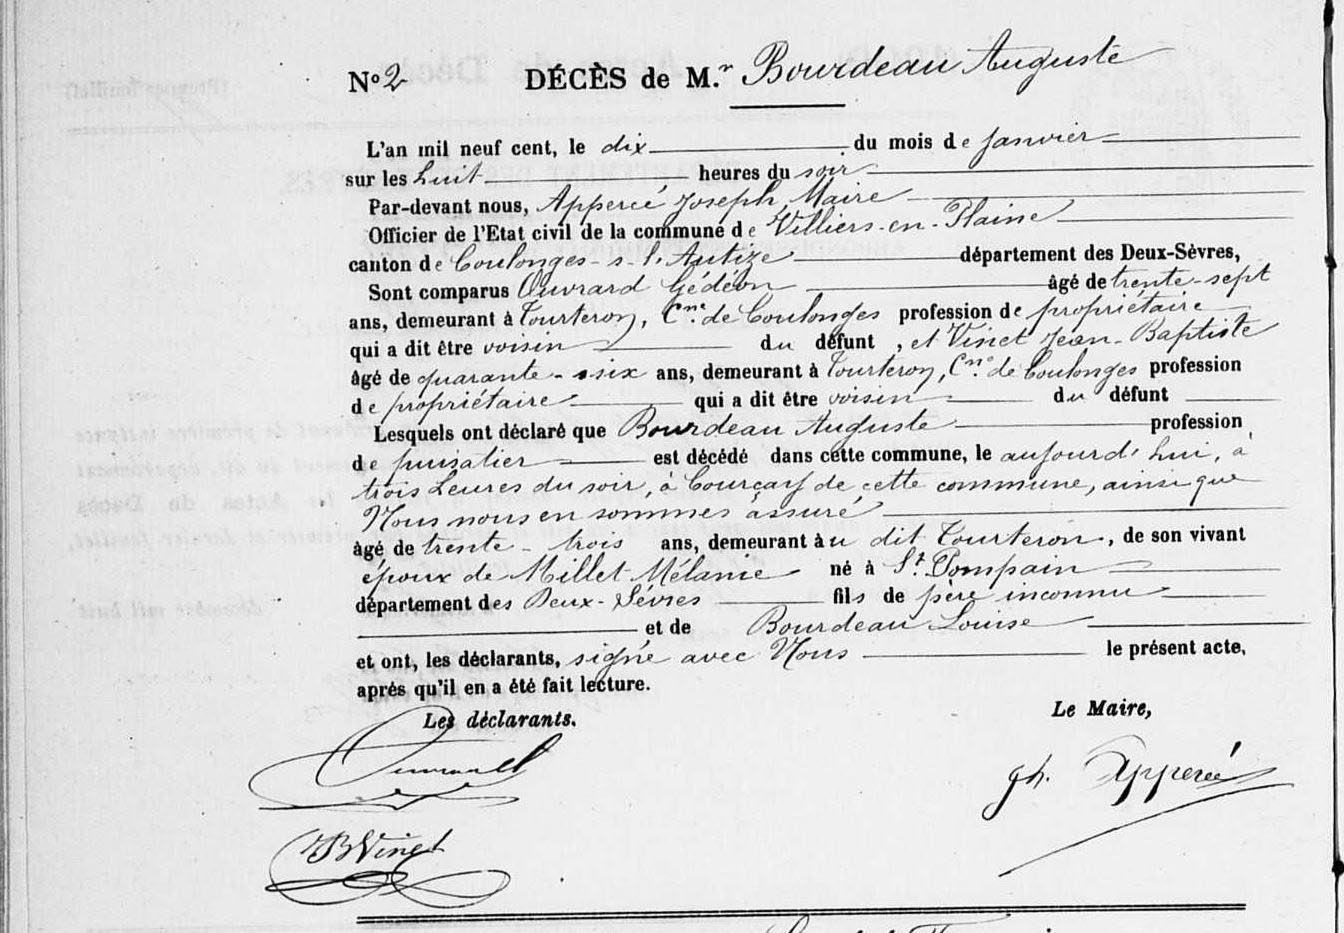 N° 2 DÉCÈS de M.r Bourdeau Auguste
L'an mil neuf cent, le dix du mois de janvier
sur les huit heures du soir
Par-devant nous, Appercé Joseph, Maire
Officier de l'Etat civil de la commune de Villiers-en-Plaine
canton de Coulonges-s-l'Autize département des Deux-Sèvres,
Sont comparus Ouvrard Gédéon âgé de trente-sept
ans, demeurant à Tourteron, Cne. de Coulonges profession de propriétaire
qui a dit être voisin du défunt, et Vinet Jean-Baptiste
âgé de quarante-six ans, demeurant à Tourteron, Cne. de Coulonges profession
de propriétaire qui a dit être voisin du défunt
Lesquels ont déclaré que Bourdeau Auguste profession
de puisatier est décédé dans cette commune, le aujourd'hui, à
trois heures du soir, à Courçay de cette commune, ainsi que
Nous nous en sommes assuré
âgé de trente-trois ans, demeurant au dit Tourteron, de son vivant
époux de Millet Mélanie né à St. Pompain
département des Deux-Sèvres fils de père inconnu
et de Bourdeau Louise
et ont, les déclarants, signé avec Nous le présent acte,
après qu'il en a été fait lecture.
Les déclarants. Le Maire,
Ouvrard
Jh. Appercé
JB Vinet